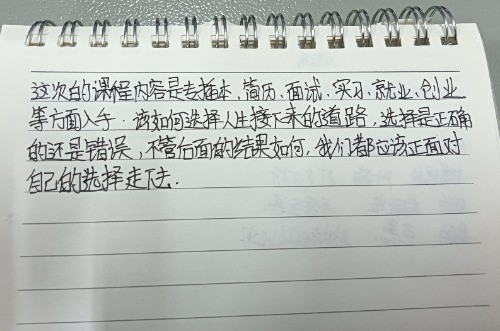 这次的课程内容是专插本,简历、面试、实习、就业、创业
等方面入手.该如何选择人生接下来的道路,选择是正确
的还是错误,不管后面的结果如何,我们都应该正面对
自己的选择走下去.